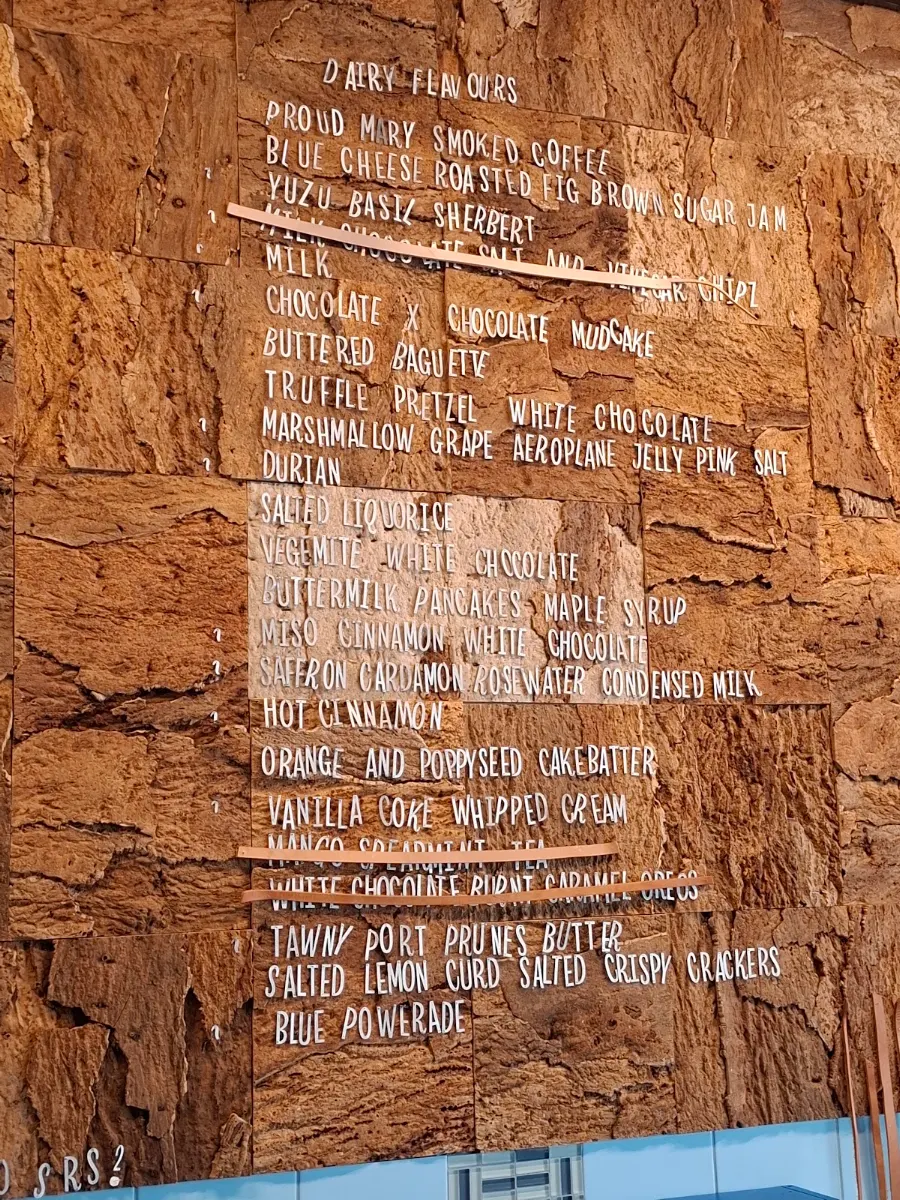 DAIRY FLAVOURS
PROUD MARY SMOKED COFFEE
BLUE CHEESE ROASTED FIG BROWN SUGAR JAM
YUZU BASIL SHERBERT
MILK CHOCOLATE SALT AND VINEGAR CHIPZ
MILK
CHOCOLATE X CHOCOLATE MUDCAKE
BUTTERED BAGUETTE
TRUFFLE PRETZEL WHITE CHOCOLATE
MARSHMALLOW GRAPE AEROPLANE JELLY PINK SALT
DURIAN
SALTED LIQUORICE
VEGEMITE WHITE CHOCOLATE
BUTTERMILK PANCAKES MAPLE SYRUP
MISO CINNAMON WHITE CHOCOLATE
SAFFRON CARDAMON ROSEWATER CONDENSED MILK
HOT CINNAMON
ORANGE AND POPPYSEED CAKEBATTER
VANILLA COKE WHIPPED CREAM
MANGO SPEARMINT TEA
WHITE CHOCOLATE BURNT CARAMEL OREOS
TAWNY PORT PRUNES BUTTER
SALTED LEMON CURD SALTED CRISPY CRACKERS
BLUE POWERADE
SRS?